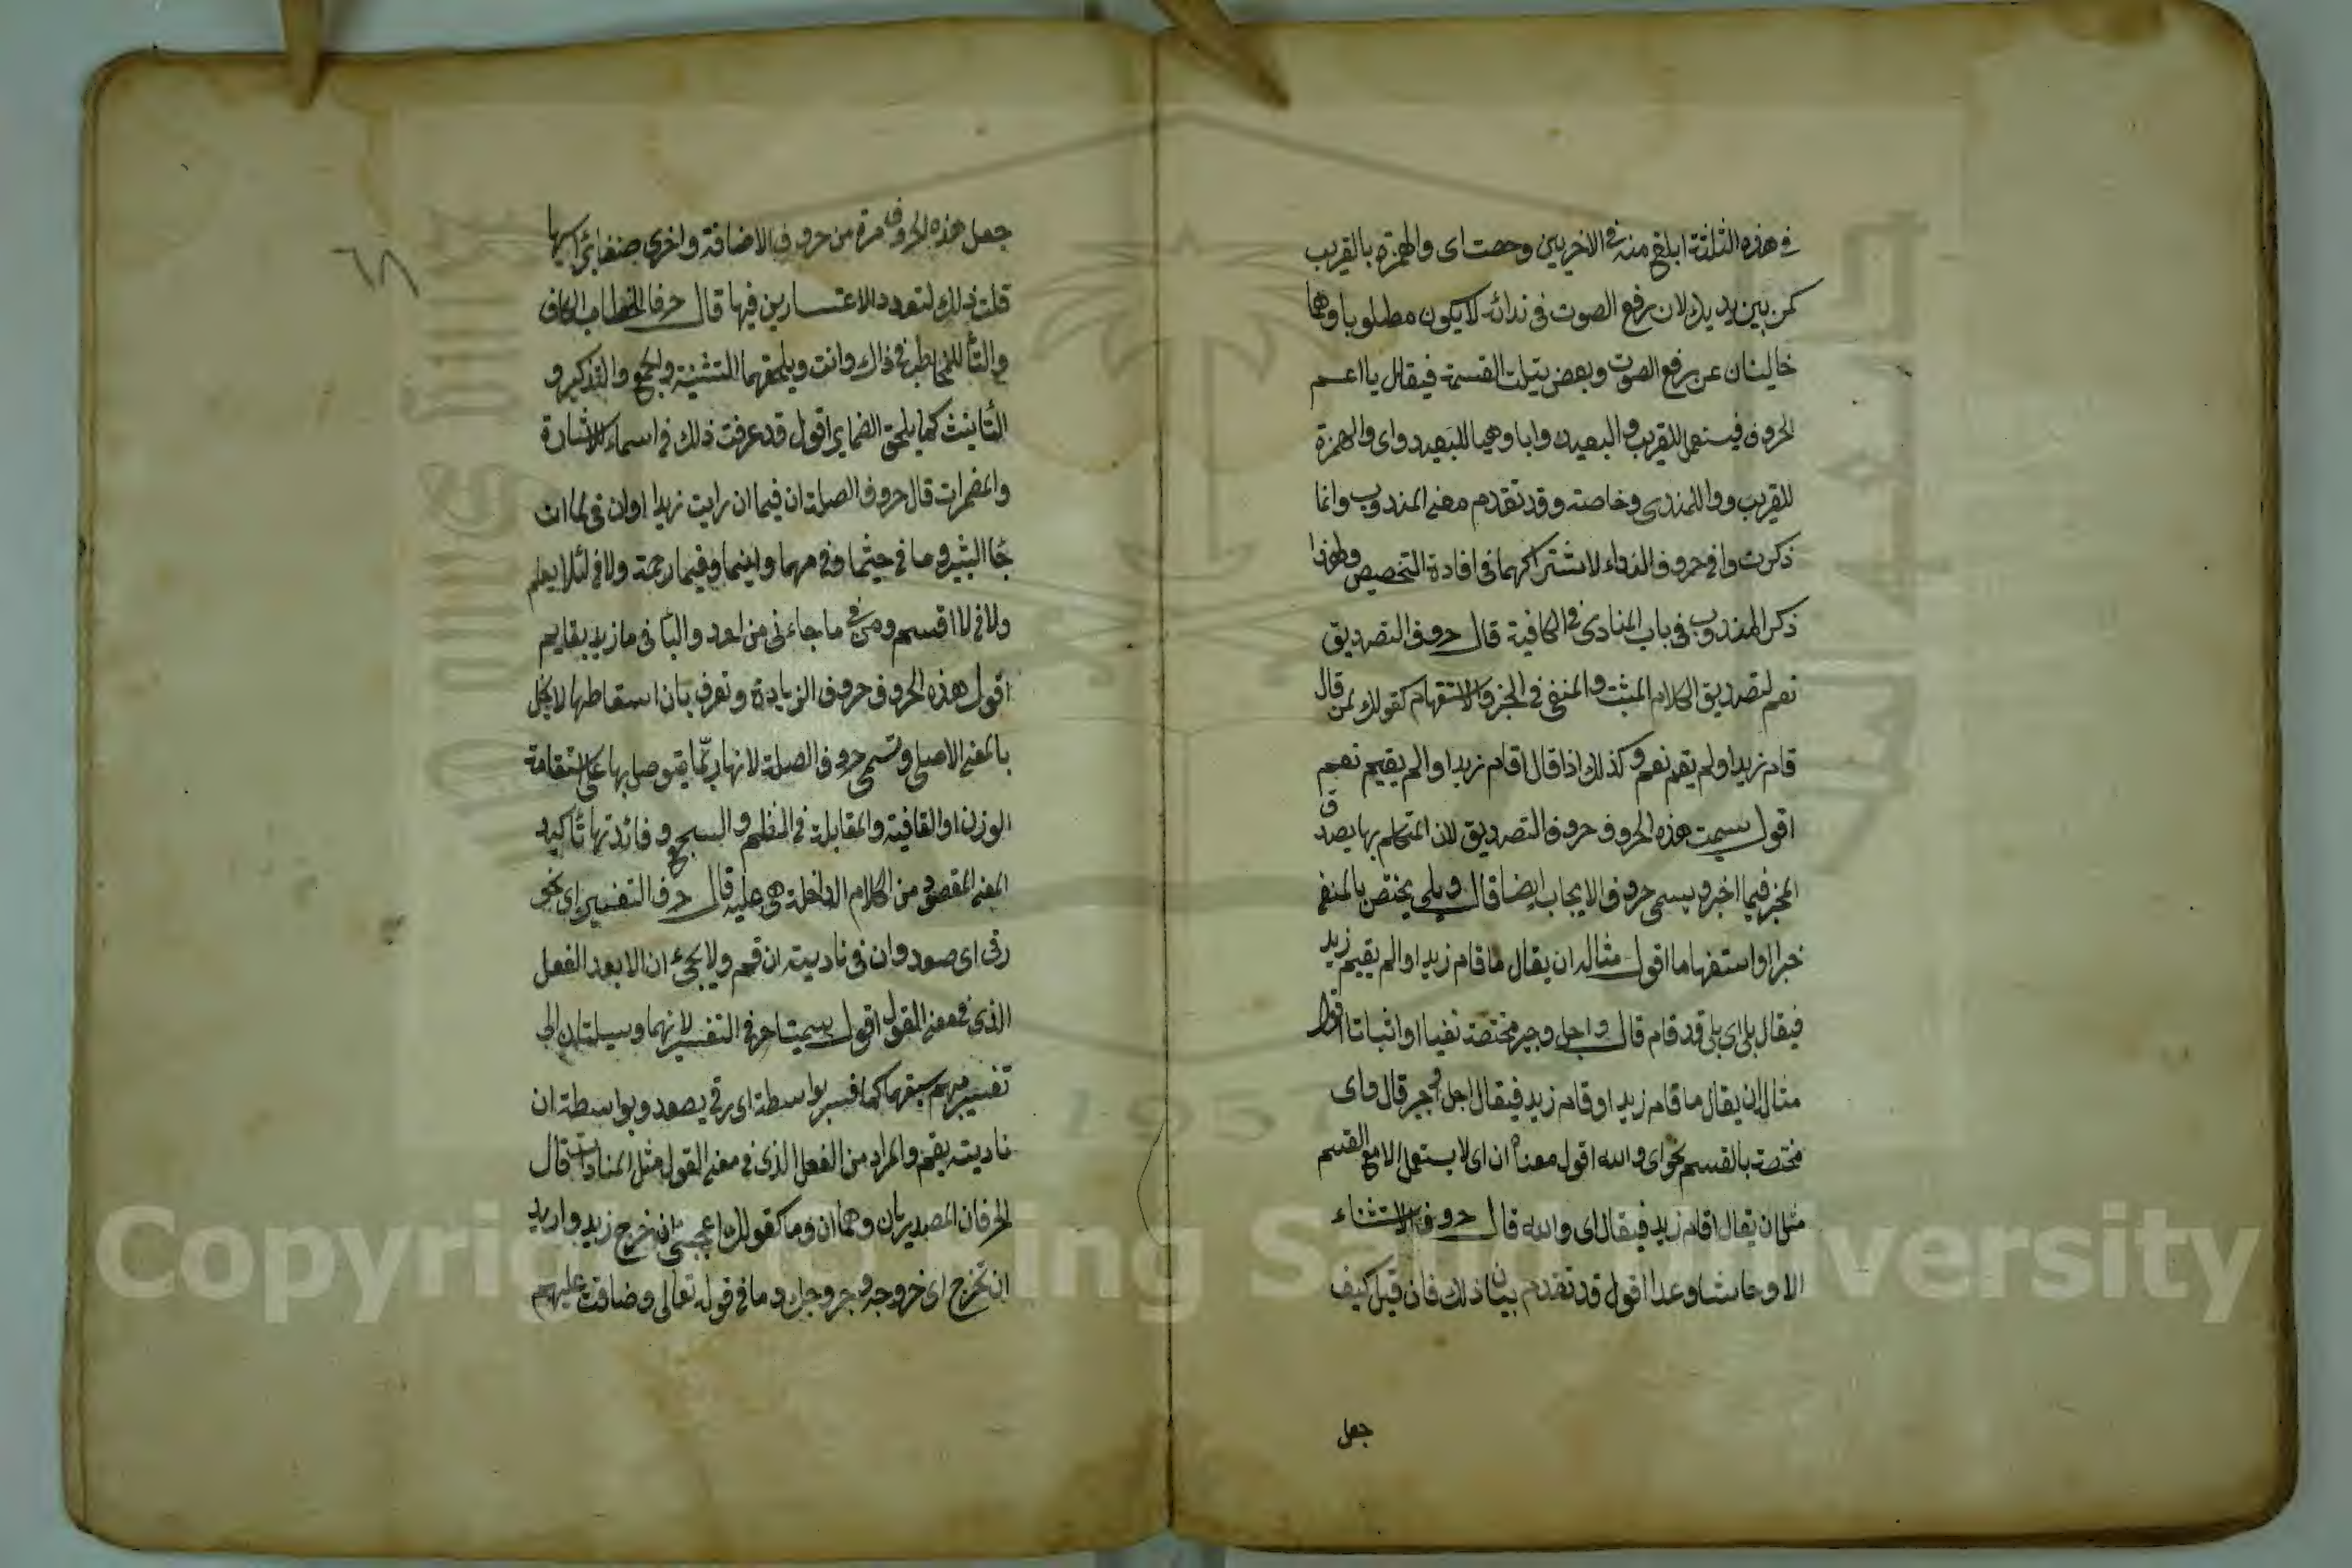 في هذه الثلثة ابلغ منه في الاخريين وخصت اى والهمزة بالقريب
كمن بين يديك لان رفع الصوت في ندائه لا يكون مطلوبا وهما
خاليتان عن رفع الصوت وبعض يثلث القسمة فيقال يا اعم
الحروف فيستعمل للقريب والبعيد وايا وهيا للبعيد واى والهمزة
للقريب ووا للمندوب خاصة وقد تقدم معنى المندوب وانما
ذكرت وا في حروف النداء لاشتراكهما في افادة التخصيص ولهذا
ذكر المندوب في باب المنادى في الكافية قال حروف التصديق
نعم لتصديق الكلام المثبت والمنفى في الخبر والاستفهام كقولك لمن قال
قام زيد او لم يقم نعم وكذلك اذا قال اقام زيد او الم يقم نعم
اقول سميت هذه الحروف حروف التصديق لان المتكلم بها يصدق
المخبر فيما اخبر ويسمى حروف الايجاب ايضا قال وبلى يختص بالمنفى
خبرا او استفهاما اقول مثاله ان يقال ما قام زيد او الم يقم زيد
فيقال بلى اى بلى قد قام قال واجل وجير مختصة نفيا او اثباتا اقول
مثاله ان يقال ما قام زيد او قام زيد فيقال اجل وجير قال واى
مختصة بالقسم نحو اى والله اقول معناه ان اى لا يستعمل الا مع القسم
مثل ان يقال اقام زيد فيقال اى والله قال حروف الاستثناء
الا وحاشا وعدا اقول قد تقدم بيان ذلك فان قيل كيف
جعل
٦٨
جعل هذه الحروف مرة من حروف الاضافة واخرى صنفا برأسها
قلت ذلك لتعدد الاعتبارين فيها قال حرفا الخطاب الكاف
والتاء للمخاطب في ذاك وانت ويلحقهما التثنية والجمع والتذكير و
التأنيث كما يلحق الضماير اقول قد عرفت ذلك في اسماء الاشارة
والمضمرات قال حروف الصلة ان فيما ان رايت زيدا وان في لما ان
جاء البشير وما في حيثما وفي مهما واينما وفيما رحمة ولا في لئلا يعلم
ولا في لا اقسم ومن في ما جاءنى من احد والباء في ما زيد بقايم
اقول هذه الحروف حروف الزيادة وتعرف بان اسقاطها لا يخل
بالمعنى الاصلى وتسمى حروف الصلة لانها ربّما يتوصل بها على استقامة
الوزن او القافية والمقابلة في النظم والسجع وفائدتها تأكيد
المعنى المقصود من الكلام الداخلة هى عليه قال حرفا التفسير اى نحو
رقى اى صعد وان في ناديته ان قم ولا يجئ ان الا بعد الفعل
الذى في معنى القول اقول سميتا حرفى التفسير لانهما وسيلتان الى
تفسير مبهم سبقهما كما فسر بواسطة اى رقى بصعد وبواسطة ان
ناديته بقم والمراد من الفعل الذى في معنى القول مثل المنادات قال
الحرفان المصدريان وهما ان وما كقولك اعجبنى ان خرج زيد واريد
ان تخرج اى خروجه وخروجك وما في قوله تعالى وضاقت عليهم